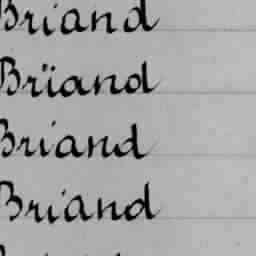 Briand
Brïand
Briand
Briand